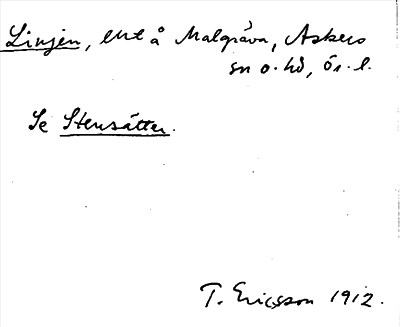 Linjen, lht å Malgräva, Askers
sn o. hd, ör. l.
Se Stensätter.
T. Ericsson 1912.